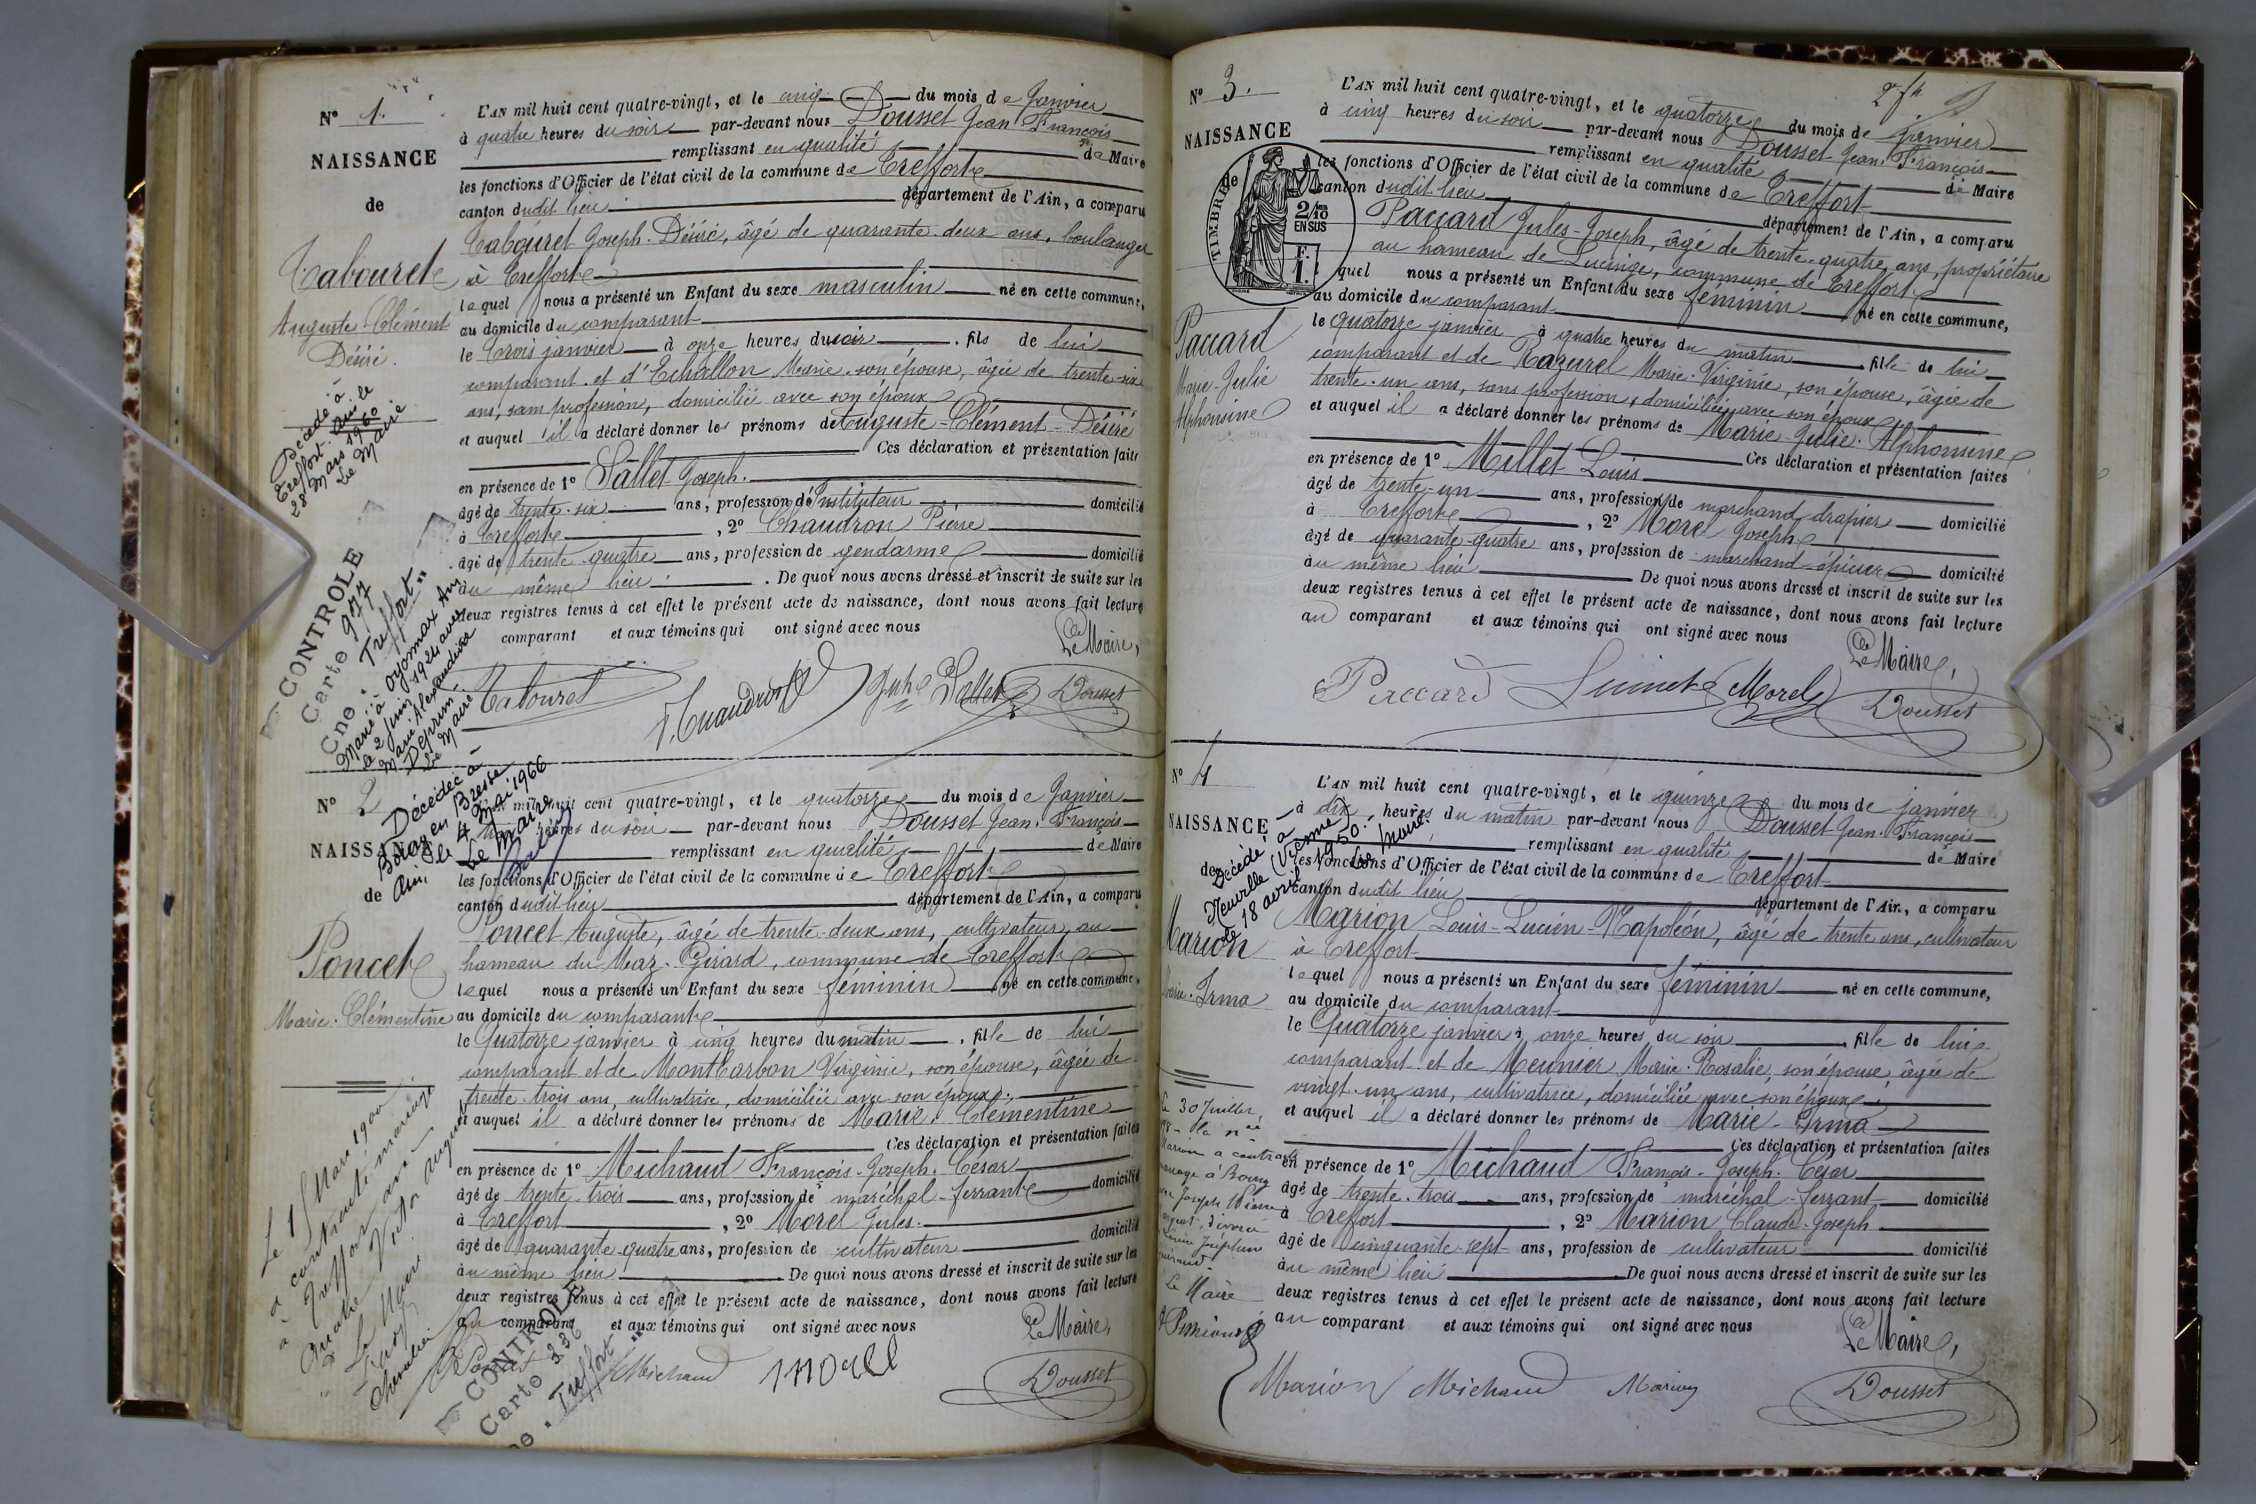 N° 1.
NAISSANCE
de
Tabouret
Auguste Clément
Désiré.
Décédé à
Treffort, Ain le
28 Mars 1960
Le Maire
CONTROLE
Carte 977
Cne "Treffort"
Marié à Oyonnax Ain
le 2 juin 1924 avec
Marie Alexandrine
Le Maire
L'AN mil huit cent quatre-vingt, et le cinq du mois de Janvier
à quatre heures du soir par-devant nous Dousset Jean François
remplissant en qualité de Maire
les fonctions d'Officier de l'état civil de la commune de Treffort
canton dudit lieu département de l'Ain, a comparu
Tabouret Joseph-Désiré, âgé de quarante-deux ans, boulanger
à Treffort
lequel nous a présenté un Enfant du sexe masculin né en cette commune,
au domicile du comparant
le trois janvier à onze heures du soir, fils de lui
comparant et d'Echallon Marie, son épouse, âgée de trente-six
ans, sans profession, domiciliée avec son époux
et auquel il a déclaré donner les prénoms de Auguste-Clément-Désiré
Ces déclaration et présentation faites
en présence de 1° Sallet Joseph.
âgé de trente-six ans, profession d'Instituteur domicilié
à Treffort, 2° Chaudron Pierre
âgé de trente-quatre ans, profession de gendarme domicilié
au même lieu. De quoi nous avons dressé et inscrit de suite sur les
deux registres tenus à cet effet le présent acte de naissance, dont nous avons fait lecture
comparant et aux témoins qui ont signé avec nous
Le Maire,
Tabouret P. Chaudron Jph Sallet Dousset
N° 2
NAISSANCE
de
Poncet
Marie-Clémentine
Décédée à
Bourg en Bresse
Ain, le 4 Mai 1966
Le Maire
Le 15 Mars 1900
a contracté mariage
à Treffort avec
Victor August
Le Maire
L'AN mil huit cent quatre-vingt, et le quatorze du mois de Janvier
heures du soir par-devant nous Dousset Jean-François
remplissant en qualité de Maire
les fonctions d'Officier de l'état civil de la commune de Treffort
canton dudit lieu département de l'Ain, a comparu
Poncet Auguste, âgé de trente-deux ans, cultivateur, au
hameau du Maz-Girard, commune de Treffort
lequel nous a présenté un Enfant du sexe féminin né en cette commune,
au domicile du comparant
le Quatorze janvier à cinq heures du matin, fille de lui
comparant et de Montbarbon Virginie, son épouse, âgée de
trente-trois ans, cultivatrice, domiciliée avec son époux.
et auquel il a déclaré donner les prénoms de Marie-Clémentine
Ces déclaration et présentation faites
en présence de 1° Michaud François-Joseph-César
âgé de trente-trois ans, profession de maréchal-ferrant domicilié
à Treffort, 2° Morel Jules.
âgé de quarante-quatre ans, profession de cultivateur domicilié
au même lieu De quoi nous avons dressé et inscrit de suite sur les
deux registres tenus à cet effet le présent acte de naissance, dont nous avons fait lecture
au comparant et aux témoins qui ont signé avec nous
Le Maire,
Poncet Michaud Morel Dousset
CONTROLE
Carte 336
"Treffort"
N° 3.
NAISSANCE
de
TIMBRE
2/10 EN SUS
F. 1.
Paccard
Marie-Julie
Alphonsine
L'AN mil huit cent quatre-vingt, et le quatorze du mois de janvier
à cinq heures du soir par-devant nous Dousset Jean-François
remplissant en qualité de Maire
les fonctions d'Officier de l'état civil de la commune de Treffort
canton dudit lieu département de l'Ain, a comparu
Paccard Jules-Joseph, âgé de trente-quatre ans, propriétaire
au hameau de Lucinge, commune de Treffort
quel nous a présenté un Enfant du sexe féminin né en cette commune,
au domicile du comparant
le quatorze janvier à quatre heures du matin, fille de lui
comparant et de Razurel Marie-Virginie, son épouse, âgée de
trente-un ans, sans profession, domiciliée avec son époux
et auquel il a déclaré donner les prénoms de Marie-Julie-Alphonsine
Ces déclaration et présentation faites
en présence de 1° Millet Louis
âgé de trente-un ans, profession de marchand drapier domicilié
à Treffort, 2° Morel Joseph
âgé de quarante-quatre ans, profession de marchand-épicier domicilié
au même lieu De quoi nous avons dressé et inscrit de suite sur les
deux registres tenus à cet effet le présent acte de naissance, dont nous avons fait lecture
au comparant et aux témoins qui ont signé avec nous
Le Maire,
Paccard Morel Dousset
N° 4
NAISSANCE
de
Marion
Marie-Irma
Décédé à
Neuville (Vienne)
le 18 avril 1950
Le Maire
Le 30 Juillet
Marion a contracté
mariage à Bourg
Joseph
divorcé
Le Maire
L'AN mil huit cent quatre-vingt, et le quinze du mois de janvier
à dix heures du matin par-devant nous Dousset Jean-François
remplissant en qualité de Maire
les fonctions d'Officier de l'état civil de la commune de Treffort
canton dudit lieu département de l'Ain, a comparu
Marion Louis-Lucien-Napoléon, âgé de trente ans, cultivateur
à Treffort
lequel nous a présenté un Enfant du sexe féminin né en cette commune,
au domicile du comparant
le Quatorze janvier à onze heures du soir, fille de lui
comparant et de Meunier Marie-Rosalie, son épouse, âgée de
vingt-un ans, cultivatrice, domiciliée avec son époux.
et auquel il a déclaré donner les prénoms de Marie-Irma
Ces déclaration et présentation faites
en présence de 1° Michaud François-Joseph-César
âgé de trente-trois ans, profession de maréchal-ferrant domicilié
à Treffort, 2° Marion Claude-Joseph
âgé de cinquante-sept ans, profession de cultivateur domicilié
au même lieu De quoi nous avons dressé et inscrit de suite sur les
deux registres tenus à cet effet le présent acte de naissance, dont nous avons fait lecture
au comparant et aux témoins qui ont signé avec nous
Le Maire,
Marion Michaud Marion Dousset